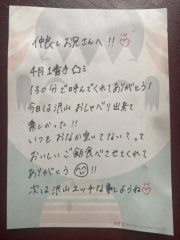 仲良しお兄さんへ!!♡
4月1番手☆ミ
130分で呼んでくれてありがとう!
今日は沢山おしゃべり出来て
楽しかった!!
いつもおなか空いてない?って
おいしいご飯食べさせてくれて
ありがとう😊!!
次は沢山エッチな事しようね♡